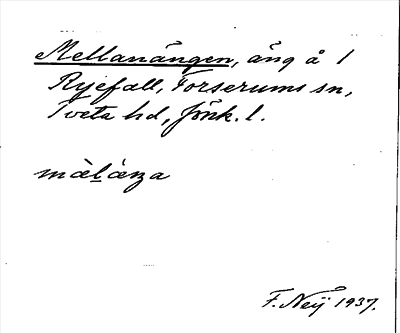 Mellanängen, äng å 1
Ryefall, Forserums sn,
Tveta hd, Jönk. l.
mälänga
F. Neij 1937.